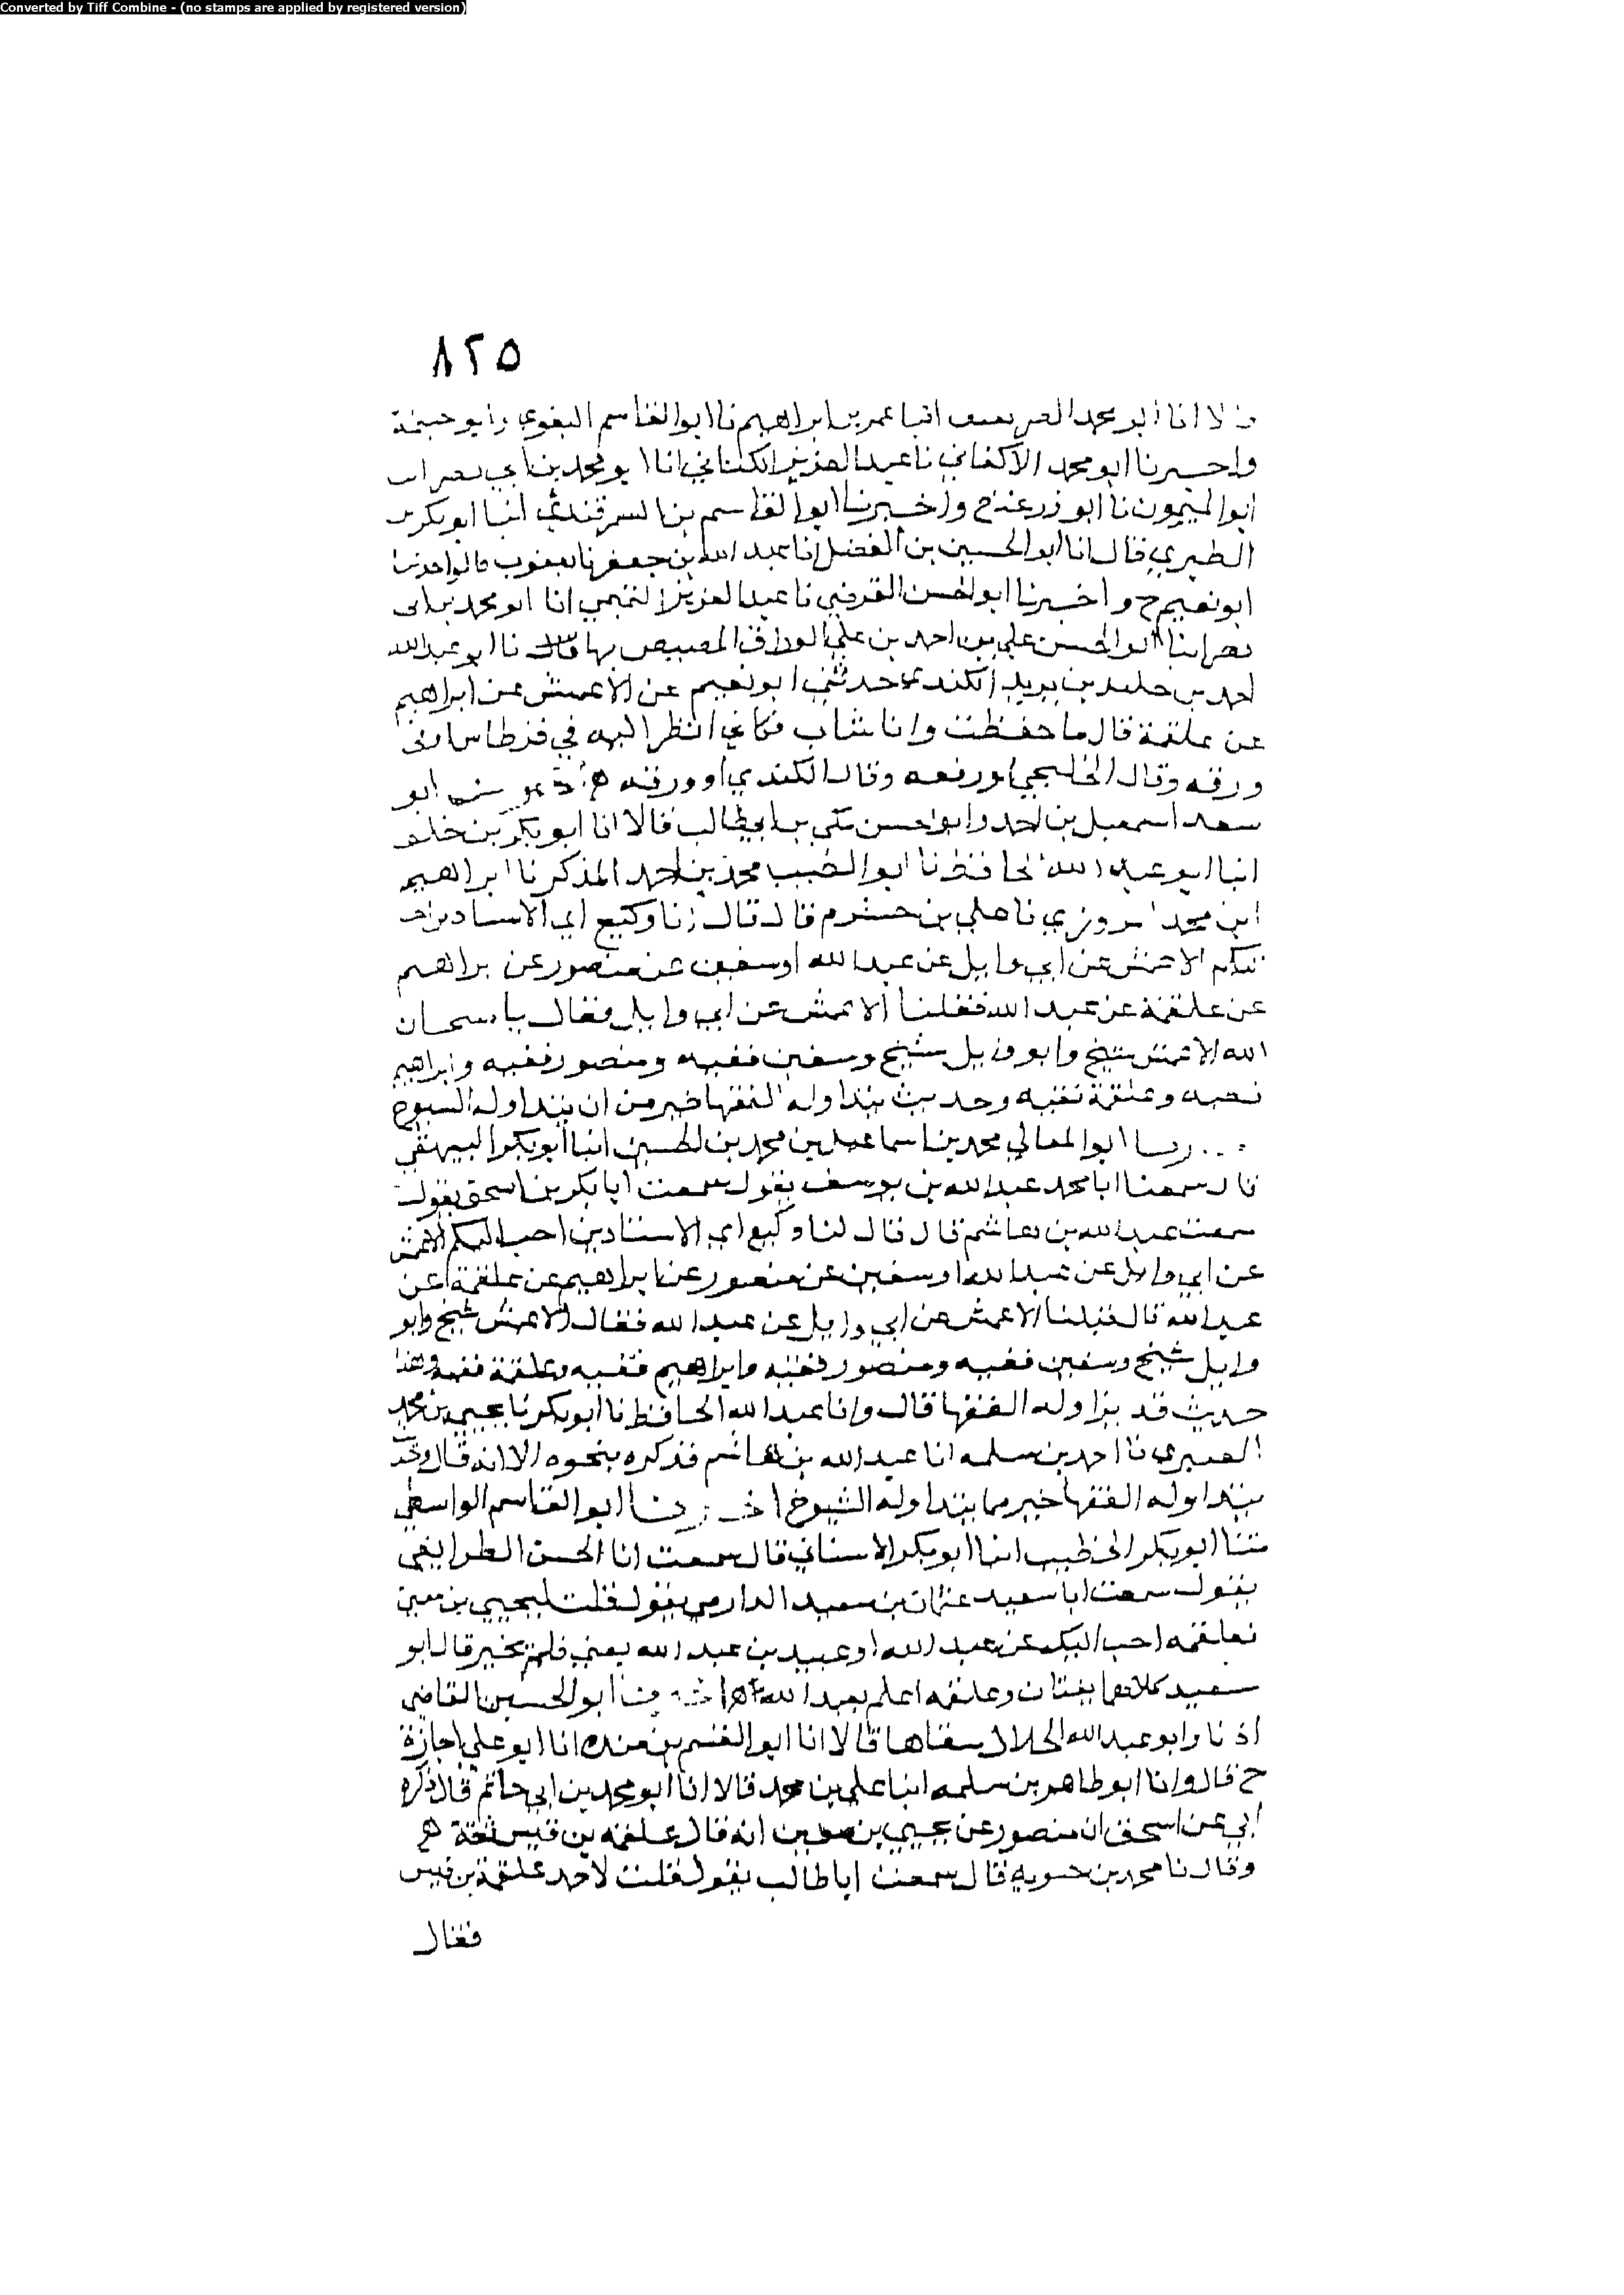 Converted by Tiff Combine - (no stamps are applied by registered version)
٨٢٥
انا ابو محمد انبا عمر بن ابراهيم نا ابو القاسم البغوي نا ابو خيثمة
واخبرنا ابو محمد الاكفاني نا عبد العزيز الكتاني انا ابو محمد بن ابي نصر انا
ابو الميمون نا ابو زرعة ح واخبرنا ابو القاسم بن السمرقندي انبا ابو بكر بن
الطبري قال انا ابو الحسين بن الفضل انا عبد الله بن جعفر نا يعقوب قالوا حدثنا
ابو نعيم ح واخبرنا ابو الحسن الفرضي نا عبد العزيز التميمي انا ابو محمد بن ابي
نصر انبا ابو الحسن علي بن احمد بن علي الوراق المصيصي بها قال نا ابو عبد الله
احمد بن خليد بن يزيد الكندي حدثني ابو نعيم عن الاعمش عن ابراهيم
عن علقمة قال ما حفظت وانا شاب فكاني انظر اليه في قرطاس او في
ورقه وقال الخليجي او رقعه وقال الكندي او ورقه ابو
سعد اسمعيل بن احمد وابو الحسن مكي بن ابي طالب قالا انا ابو بكر بن خلف
انبا ابو عبد الله الحافظ نا ابو الطيب محمد بن احمد المذكر نا ابراهيم
ابن محمد المروزي نا علي بن خشرم قال قال لنا وكيع اي الاسنادين احب
اليكم الاعمش عن ابي وايل عن عبد الله او سفين عن منصور عن ابراهيم
عن علقمة عن عبد الله فقلنا الاعمش عن ابي وايل فقال يا سبحان
الله الاعمش شيخ وابو وايل شيخ وسفين فقيه ومنصور فقيه وابراهيم
فقيه وعلقمة فقيه وحديث يتداوله الفقها خير من ان يتداوله الشيوخ
ابو المعالي محمد بن اسماعيل بن محمد بن الحسين انبا ابو بكر البيهقي
قال سمعنا ابا محمد عبد الله بن يوسف يقول سمعت ابا بكر بن اسحق يقول
سمعت عبد الله بن هاشم قال قال لنا وكيع اي الاسنادين احب اليكم الاعمش
عن ابي وايل عن عبد الله او سفين عن منصور عن ابراهيم عن علقمة عن
عبد الله قال فقلنا الاعمش عن ابي وايل عن عبد الله فقال الاعمش شيخ وابو
وايل شيخ وسفين فقيه ومنصور فقيه وابراهيم فقيه وعلقمة فقيه وهذا
حديث قد يتداوله الفقها قال وانا عبد الله الحافظ نا ابو بكر نا يحيى بن محمد
العنبري نا احمد بن سلمه انا عبد الله بن هاشم فذكره بنحوه الا انه قال وحديث
يتداوله الفقها خير مما يتداوله الشيوخ اخبرنا ابو القاسم الواسطي
ثنا ابو بكر الخطيب انبا ابو بكر الاشناني قال سمعت ابا الحسن الطرايفي
يقول سمعت ابا سعيد عثمان بن سعيد الدارمي يقول قلت ليحيى بن معين
فعلقمه احب اليك عن عبد الله او عبيد بن عبد الله يعني فلم يخير قال ابو
سعيد كلاهما ثقتان وعلقمه اعلم بعبد الله اخبرنا ابو الحسين القاضي
اذنا وابو عبد الله الخلال شفاها قالا انا ابو القسم بن منده انا ابو علي اجازة
ح قال وانا ابو طاهر بن سلمه انبا علي بن محمد قالا انا ابو محمد بن ابي حاتم قال ذكره
ابي عن اسحق بن منصور عن يحيى بن معين انه قال علقمه بن قيس ثقة
وقال نا محمد بن حمويه قال سمعت ابا طالب يقول قلت لاحمد علقمة بن قيس
فقال